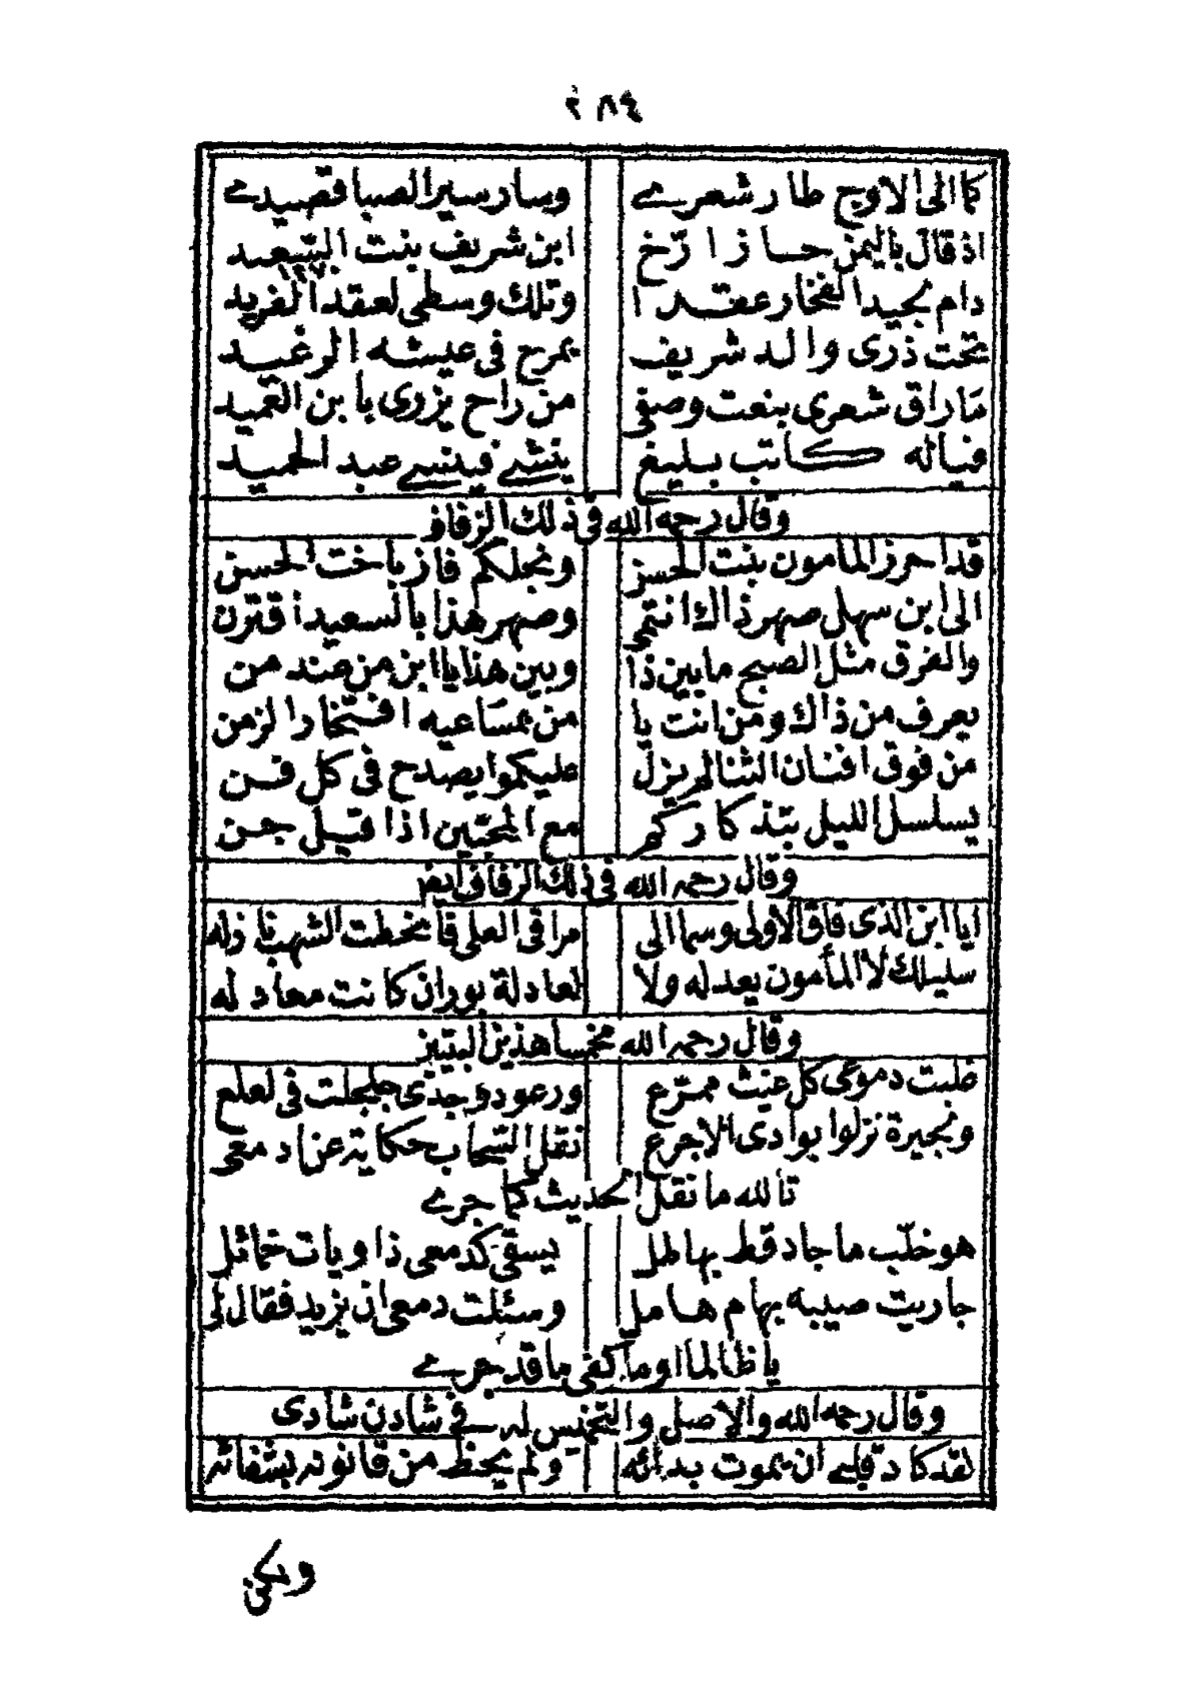 ٢٨٤
كما الى الاوج طار شعرے وسار سير الصبا قصيدے
اذ قال باليمن حساز ارّخ ابن شريف بنت السّعيد
١٢٧٠
دام بجيد الفخار عقدا وتلك وسطى لعقد الفريد
تحت ذرى والد شريف يمرح فى عيشه الرغيد
ما راق شعرى بنعت وصفى من راح يزرى بابن العميد
فياله كاتب بليغ ينشے فينسے عبد الحميد
وقال رحمه الله فى ذلك الزفاف
قد احرز المامون بنت الحسن ونجلكم فاز باخت الحسن
الى ابن سهل صهر ذاك انتمى وصهر هذا بالسعيد اقترن
والفرق مثل الصبح مابين ذا وبين هذا يا ابن من عند من
يعرف من ذاك ومن انت يا من بمساعيه افتخار الزمن
من فوق افنان الثنا لم يزل عليكموا يصدح فى كل فن
يسلسل الليل بتذكاركم مع المحبّين اذا قيل جن
وقال رحمه الله فى ذلك الزفاف ايضا
ايا ابن الذى فاق الاولى وسما الى مراقى العلى فانحطت الشهب نازله
سليلك لا المأمون يعدله ولا لعادلة بوران كانت معادله
وقال رحمه الله مخمسا هذين البيتين
خلبت دموعى كل غيث ممرّع ورعود وجدى جلجلت فى لعلع
وبجيرة نزلوا بوادى الاجرع نقل السّحاب حكاية عن ادمعى
تالله ما نقل الحديث كما جرے
هو خلّب ما جاد قط بهاطل يسقى كدمعى ذاويات خمائل
جاريت صيبه بهام هامل وسئلت دمعى ان يزيد فقال لى
يا ظالما اوما كفى ما قد جرے
وقال رحمه الله والاصل والتخميس له فے شادن شادى
لقد كاد قلبے ان يموت بدائه ولم يحظ من قانونه بشفائه
وبكى